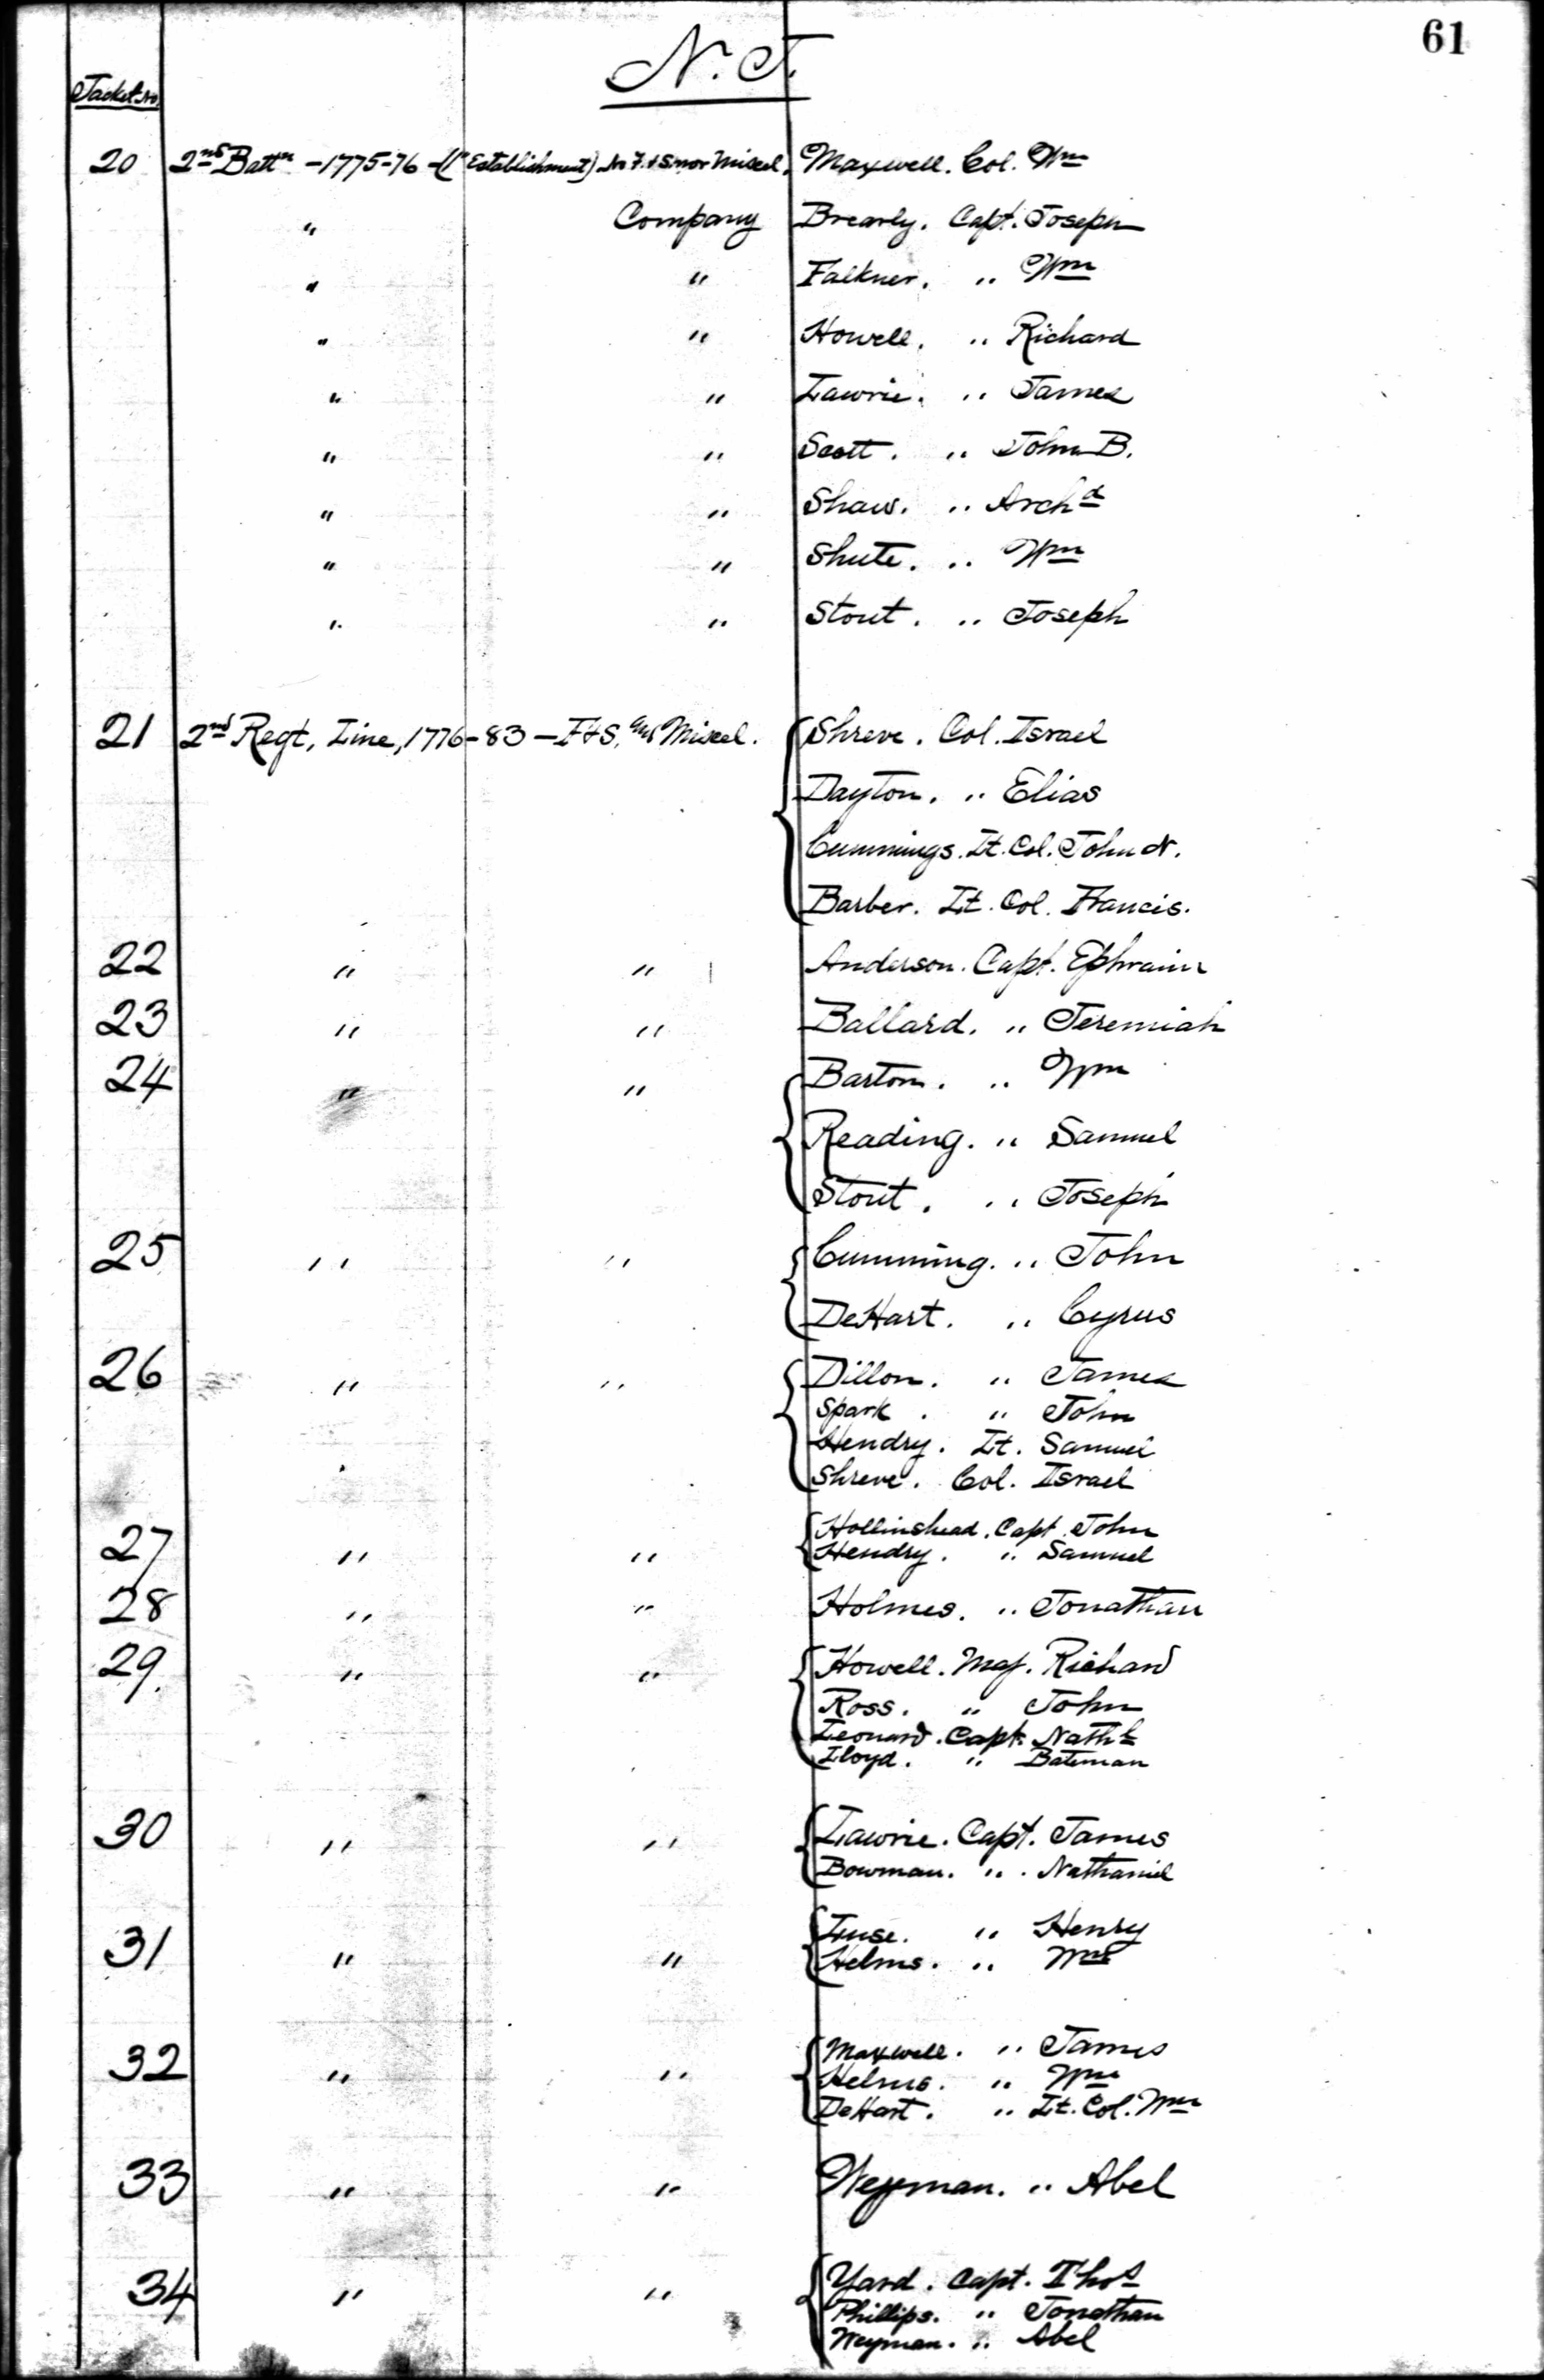 61
N. J.
Jacket No.
20 2nd Battn - 1775-76 - (1st Establishment) No F. & S. nor Miscel. Maxwell. Col. Wm
" Company Brearly. Capt. Joseph
" " Falkner. " Wm
" " Howell. " Richard
" " Lawrie. " James
" " Scott. " John B.
" " Shaw. " Archd
" " Shute. " Wm
" " Stout. " Joseph
21 2nd Regt, Line, 1776-83 - F & S. and Miscel. Shreve. Col. Israel
Dayton. " Elias
Cummings. Lt. Col. John N.
Barber. Lt. Col. Francis.
22 " " Anderson. Capt. Ephraim
23 " " Ballard. " Jeremiah
24 " " Barton. " Wm
Reading. " Samuel
Stout. " Joseph
25 " " Cumming. " John
DeHart. " Cyrus
26 " " Dillon. " James
Spark. " John
Hendry. Lt. Samuel
Shreve. Col. Israel
Hollinshead. Capt. John
27 " " Hendry. " Samuel
28 " " Holmes. " Jonathan
29. " " Howell. Maj. Richard
Ross. " John
Leonard. Capt. Nathl
Lloyd. " Bateman
30 " " Lawrie. Capt. James
Bowman. " Nathaniel
Luse. " Henry
31 " " Helms. " Wm
Maxwell. " James
32 " " Helms. " Wm
DeHart. " Lt. Col. Wm
33 " " Weyman. " Abel
34 " " Yard. Capt. Thos
Phillips. " Jonathan
Weyman. " Abel